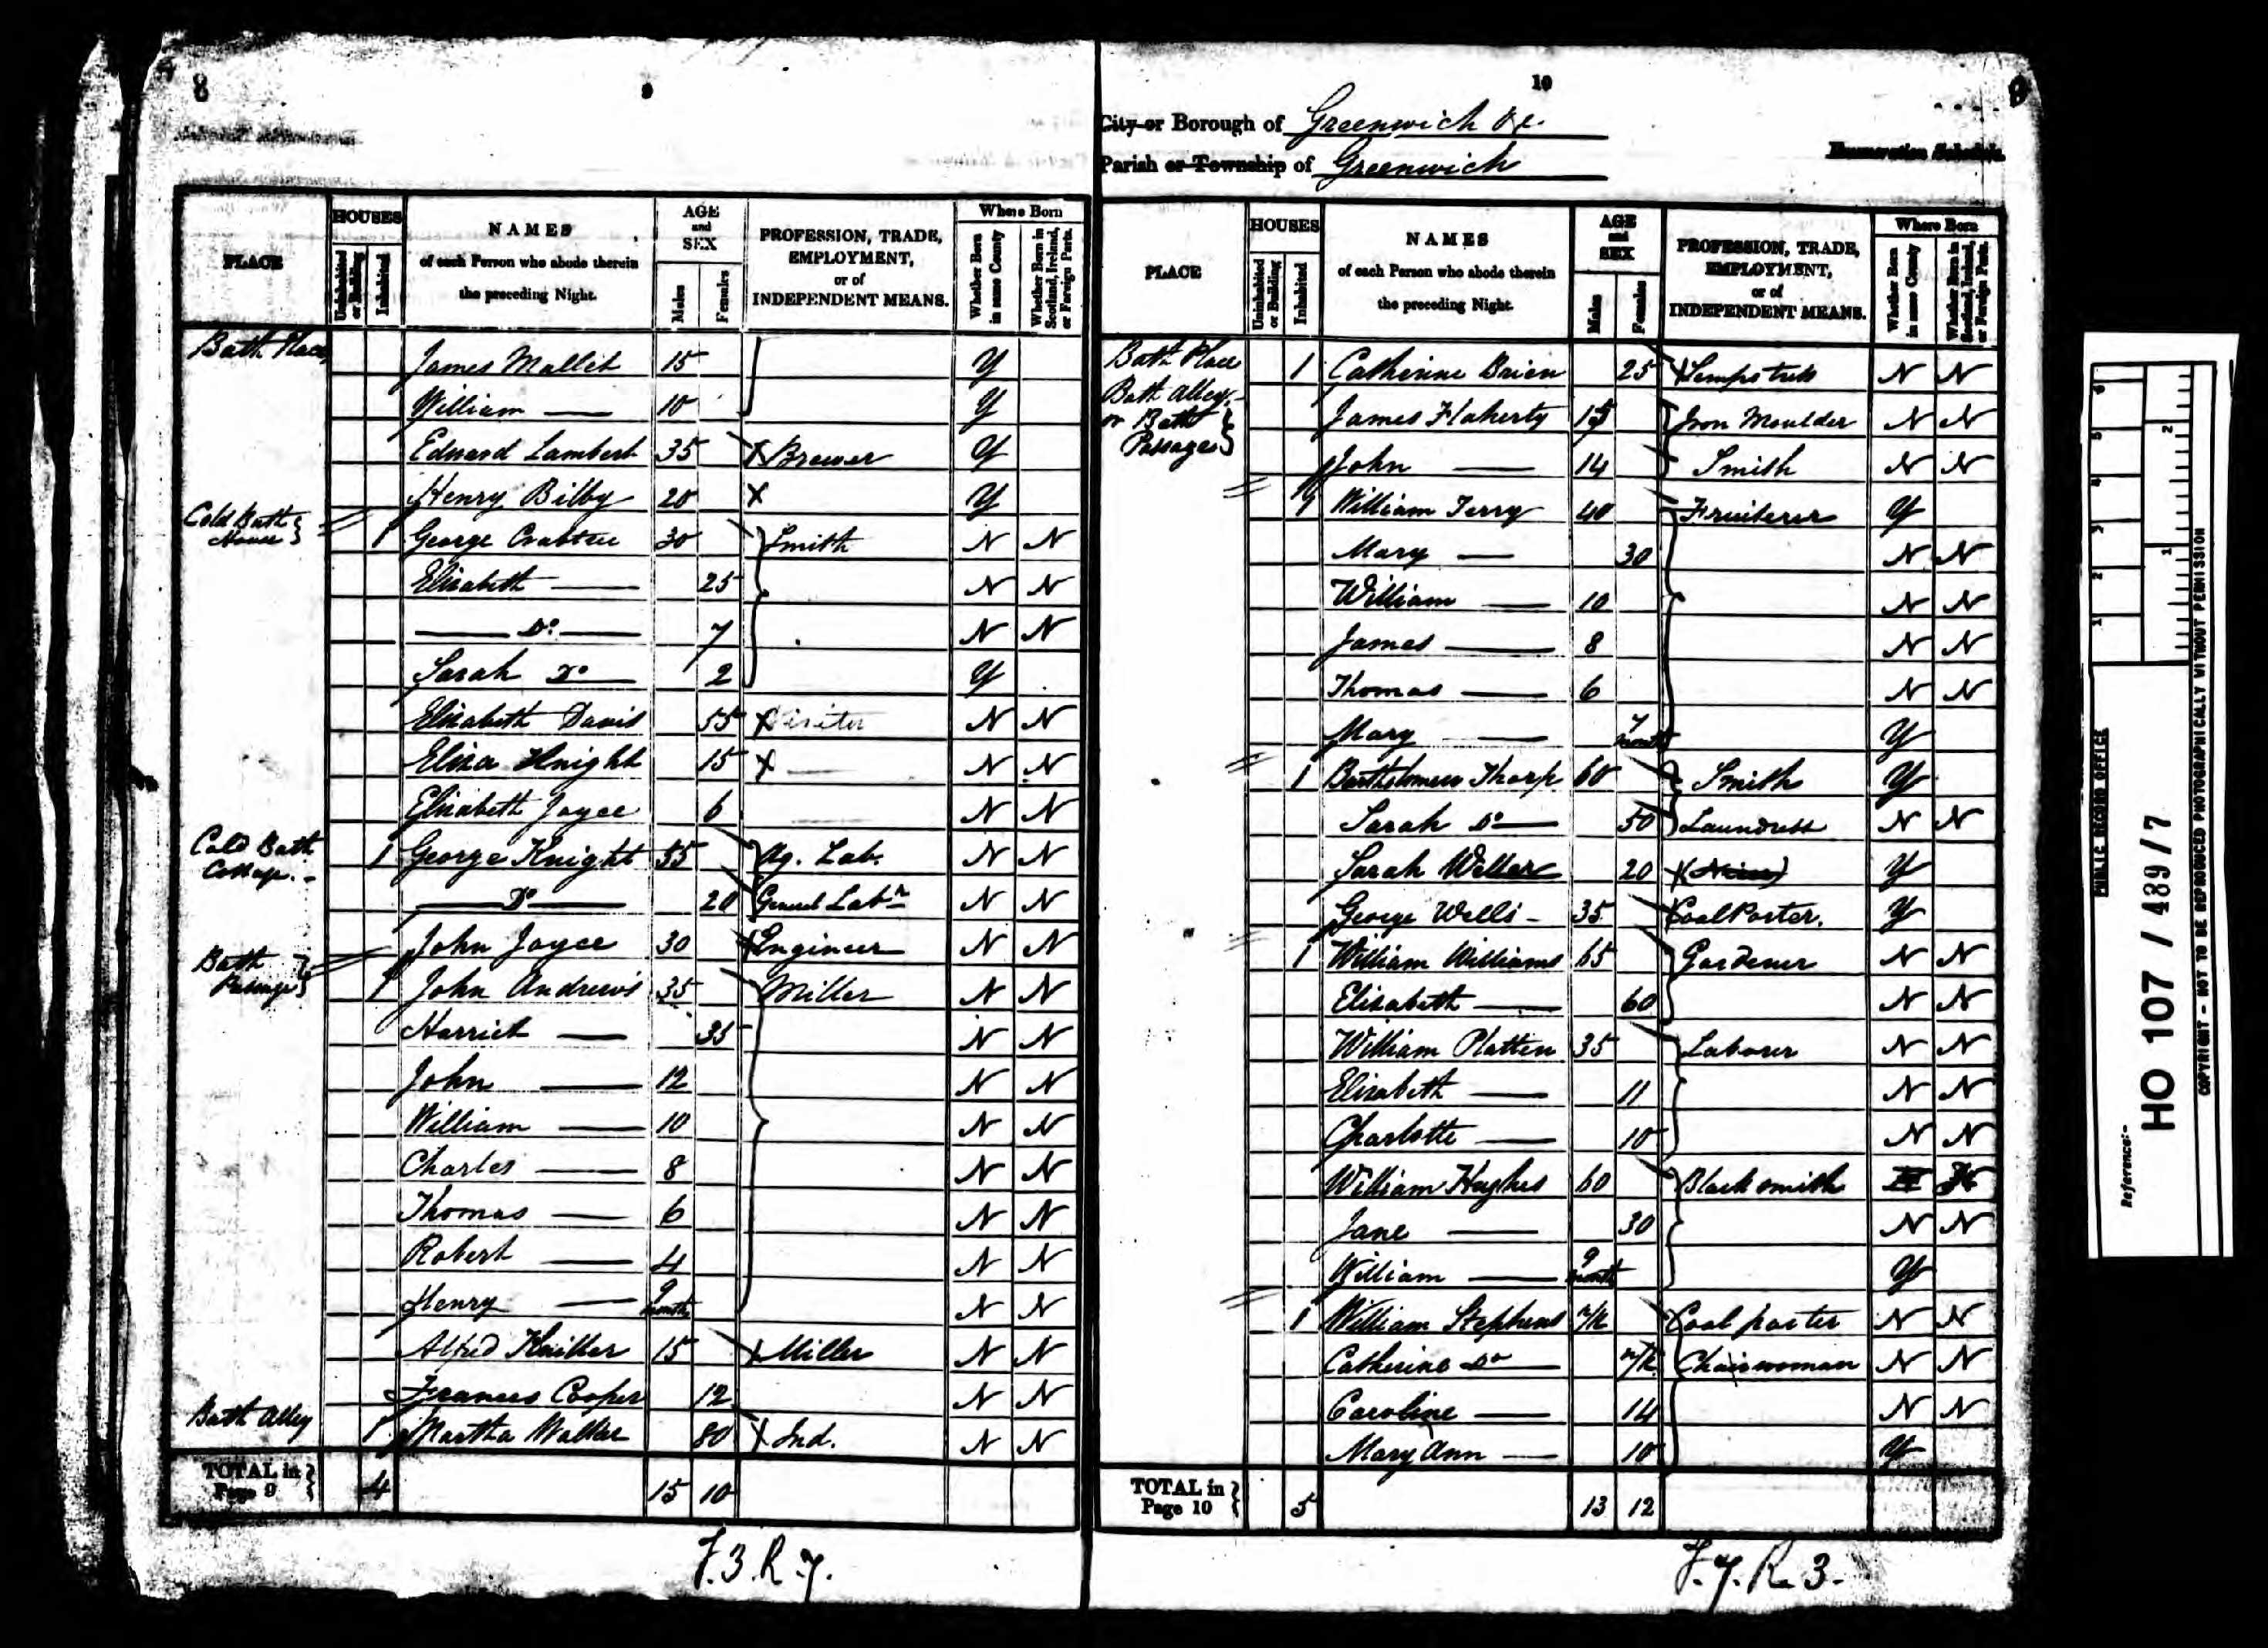 8
9
PLACE
HOUSES
Uninhabited or Building
Inhabited
NAMES
of each Person who abode therein
the preceding Night.
AGE
and
SEX
Males
Females
PROFESSION, TRADE,
EMPLOYMENT,
or of
INDEPENDENT MEANS.
Where Born
Whether Born in same County
Whether Born in Scotland, Ireland, or Foreign Parts.
Bath Place James Mallet 15 Y
William — 10 Y
Edward Lambert 35 X Brewer Y
Henry Bilby 20 X Y
Cold Bath House } 1 George Crabtree 30 Smith N N
Elizabeth — 25 N N
— Do. — 7 N N
Sarah Do — 2 Y
Elizabeth Davis 55 X Visitor N N
Eliza Knight 15 X — N N
Elizabeth Joyce 6 N N
Cold Bath Cottage. 1 George Knight 55 Ag. Lab. N N
— Do — 20 General Labr N N
John Joyce 30 Engineer N N
Bath Passage } 1 John Andrews 35 Miller N N
Harriet — 35 N N
John — 12 N N
William — 10 N N
Charles — 8 N N
Thomas — 6 N N
Robert — 4 N N
Henry — 9 months N N
Alfred 15 X Miller N N
Frances Cooper 12 N N
Bath Alley 1 Martha Walker 80 X Ind. N N
TOTAL in Page 9 } 4 15 10
F.3.R.7.
10
City or Borough of Greenwich &c.
Parish or Township of Greenwich
Enumeration Schedule.
PLACE
HOUSES
Uninhabited or Building
Inhabited
NAMES
of each Person who abode therein
the preceding Night.
AGE
and
SEX
Males
Females
PROFESSION, TRADE,
EMPLOYMENT,
or of
INDEPENDENT MEANS.
Where Born
Whether Born in same County
Whether Born in Scotland, Ireland, or Foreign Parts.
Bath Place 1 Catherine Brien 25 X Sempstress N N
Bath Alley, or Bath Passage } James Flaherty 15 Iron Moulder N N
John — 14 Smith N N
1 William Terry 40 Fruiterer Y
Mary — 30 N N
William — 10 N N
James — 8 N N
Thomas — 6 N N
Mary — 7 months Y
1 Bartholomew Tharp 60 Smith Y
Sarah Do — 50 Laundress N N
Sarah Weller 20 X Y
George Wells — 35 Coal Porter. Y
1 William Williams 65 Gardener N N
Elizabeth — 60 N N
William Platten 35 Laborer N N
Elizabeth — 11 N N
Charlotte — 10 N N
William Hughes 60 Blacksmith
Jane — 30 N N
William — 9 months Y
1 William Stephens n/k Coal porter N N
Catherine Do — n/k Chairwoman N N
Caroline — 14 N N
Mary Ann — 10 Y
TOTAL in Page 10 } 5 13 12
F.7.R.3.
PUBLIC RECORD OFFICE
Reference:-
HO 107 / 489/7
COPYRIGHT - NOT TO BE REPRODUCED PHOTOGRAPHICALLY WITHOUT PERMISSION